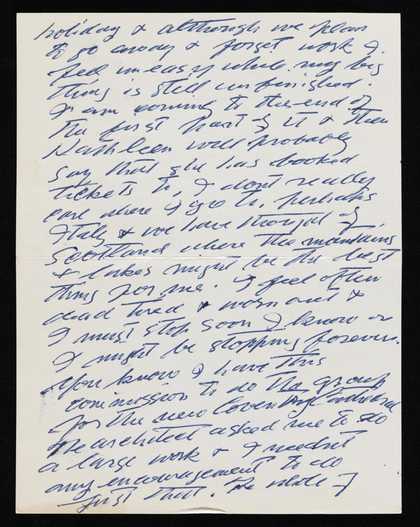 holiday & although we plan
to go away & forget work I
feel uneasy while my big
thing is still unfinished.
I am coming to the end of
the first part of it & then
Kathleen will probably
say that she has booked
tickets to, I dont really
care where I go to, perhaps
Italy & we have thought of
Scotland where the mountains
& lakes might be the best
thing for me. I feel often
dead tired & worn out &
I must stop soon I know or
I might be stopping forever.
You know I have this
commission to do the group
for the new Coventry Cathedral
The architect asked me to do
a large work & I neednt
any encouragement to do
just that. The whole